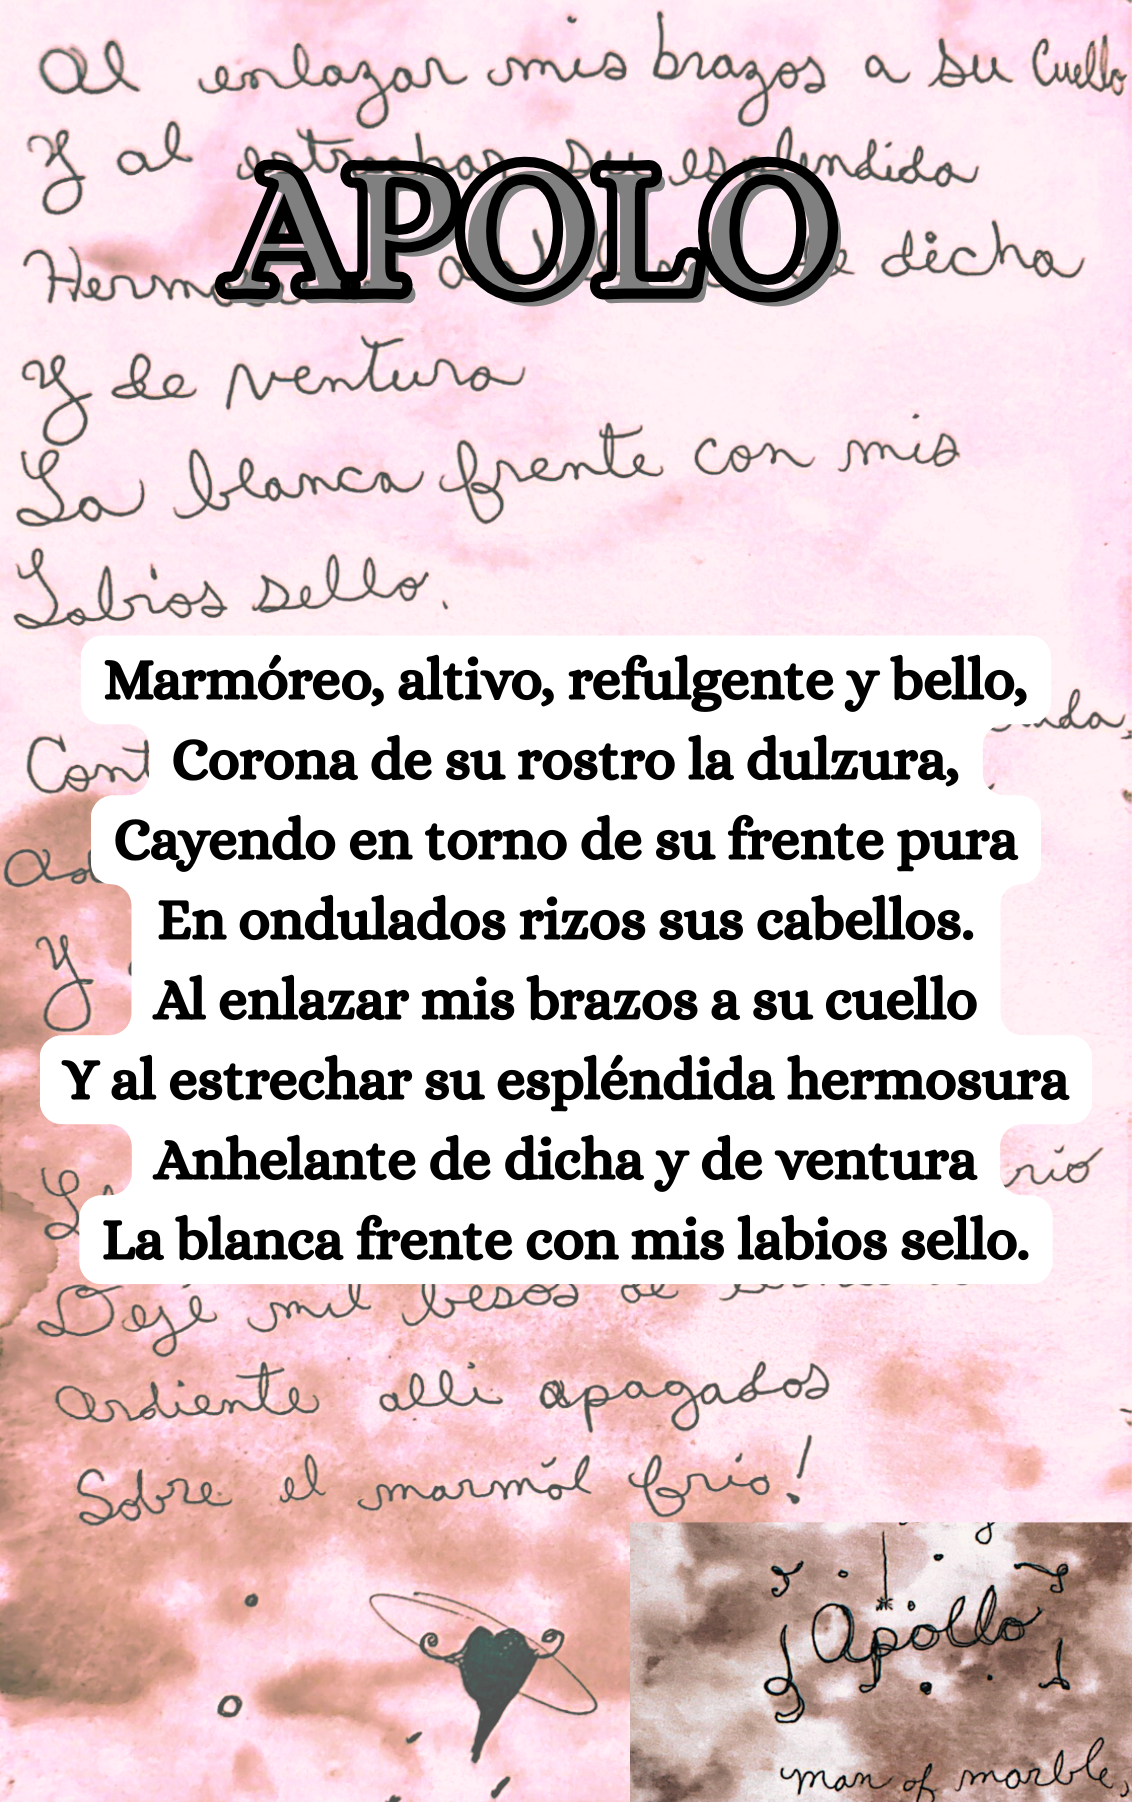 Al enlazar mis brazos a su Cuello
Y al estrechar su esplendida
APOLO
de dicha
Y de ventura
La blanca frente con mis
Labios sello.
Marmóreo, altivo, refulgente y bello,
Corona de su rostro la dulzura,
Cayendo en torno de su frente pura
En ondulados rizos sus cabellos.
Al enlazar mis brazos a su cuello
Y al estrechar su espléndida hermosura
Anhelante de dicha y de ventura
La blanca frente con mis labios sello.
Dejé mil besos de
ardiente alli apagados
Sobre el marmól frío!
Apollo
man of marble,